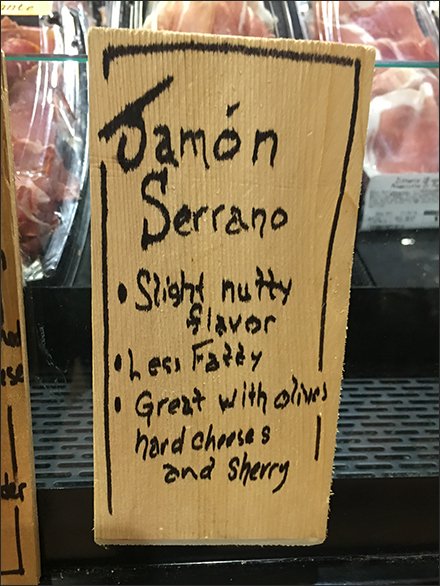 Jamón
Serrano
• Slight nutty
flavor
• Less Fatty
• Great with olives
hard cheeses
and Sherry